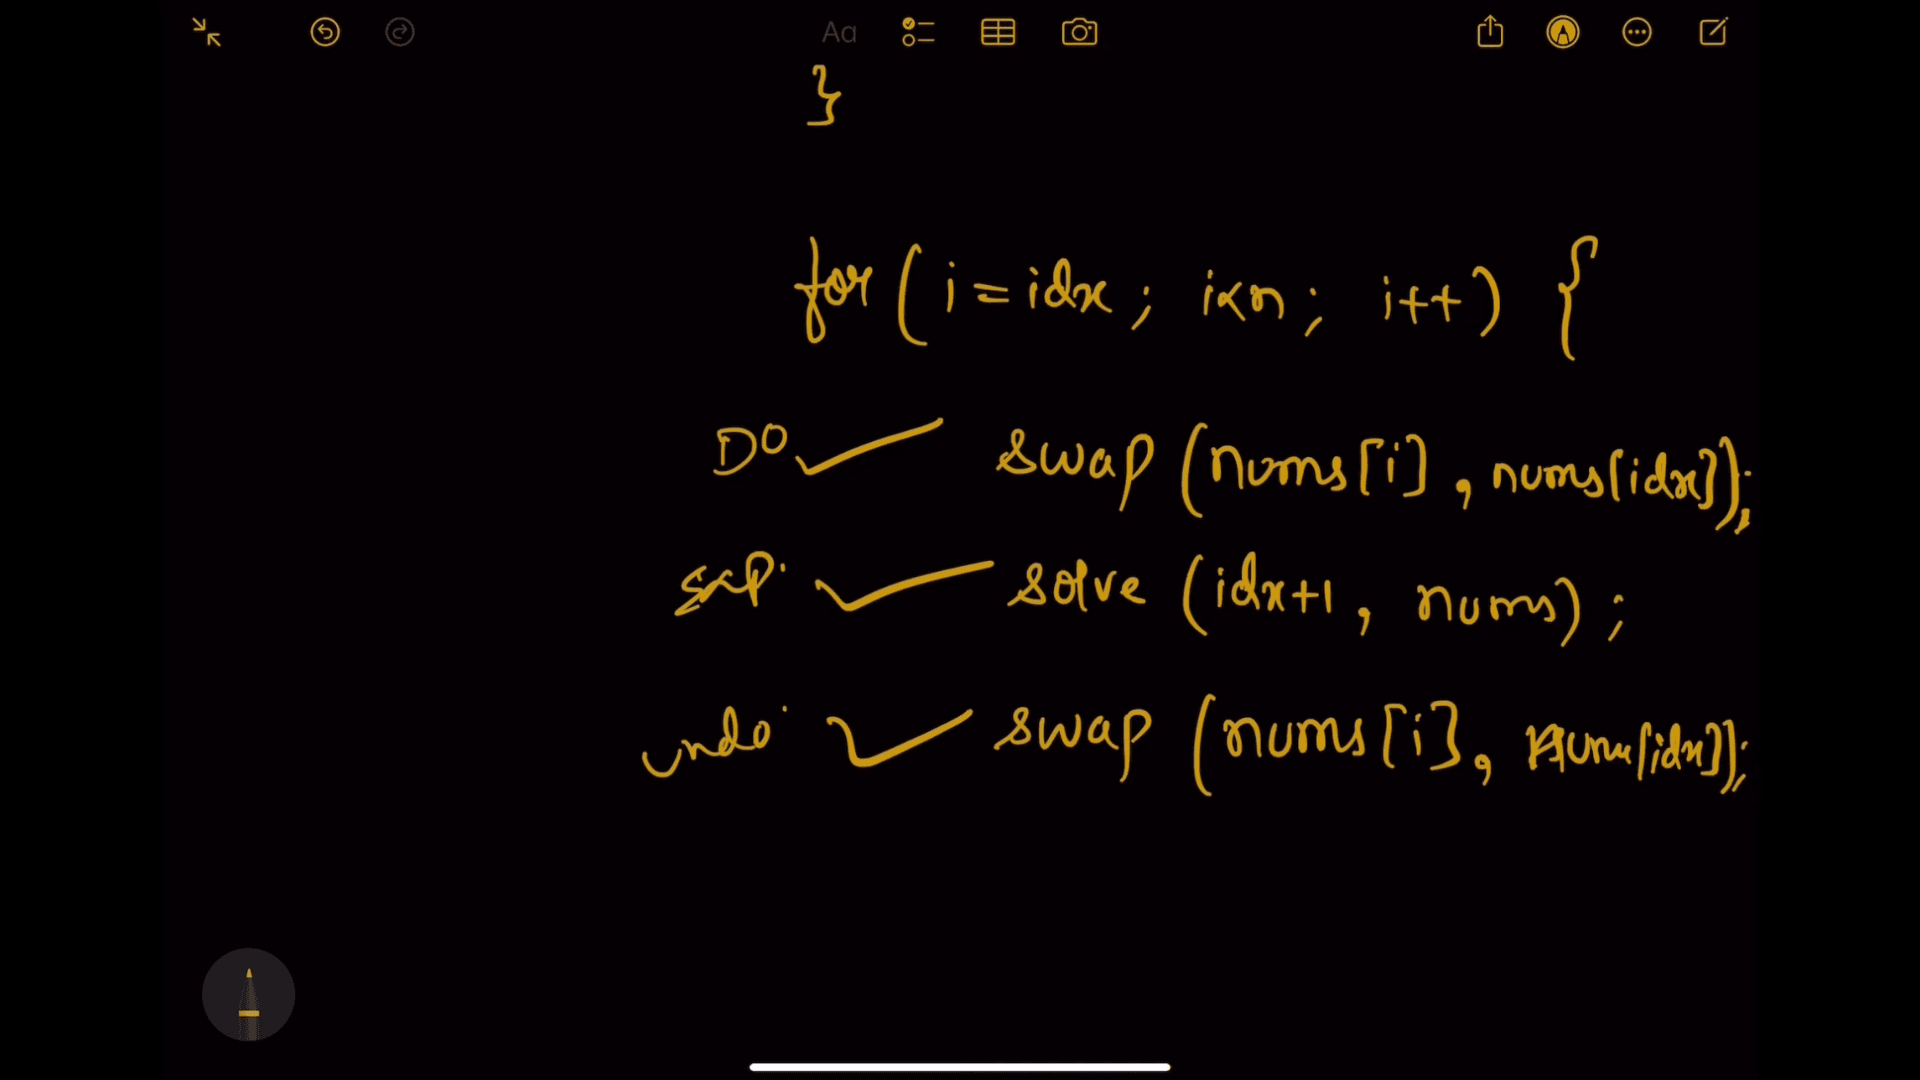 Aa
}
for ( i = idx ; i<n ; i++ ) {
DO swap (nums[i] , nums[idx]);
exp. solve (idx+1 , nums) ;
undo swap (nums[i] , nums[idx]);